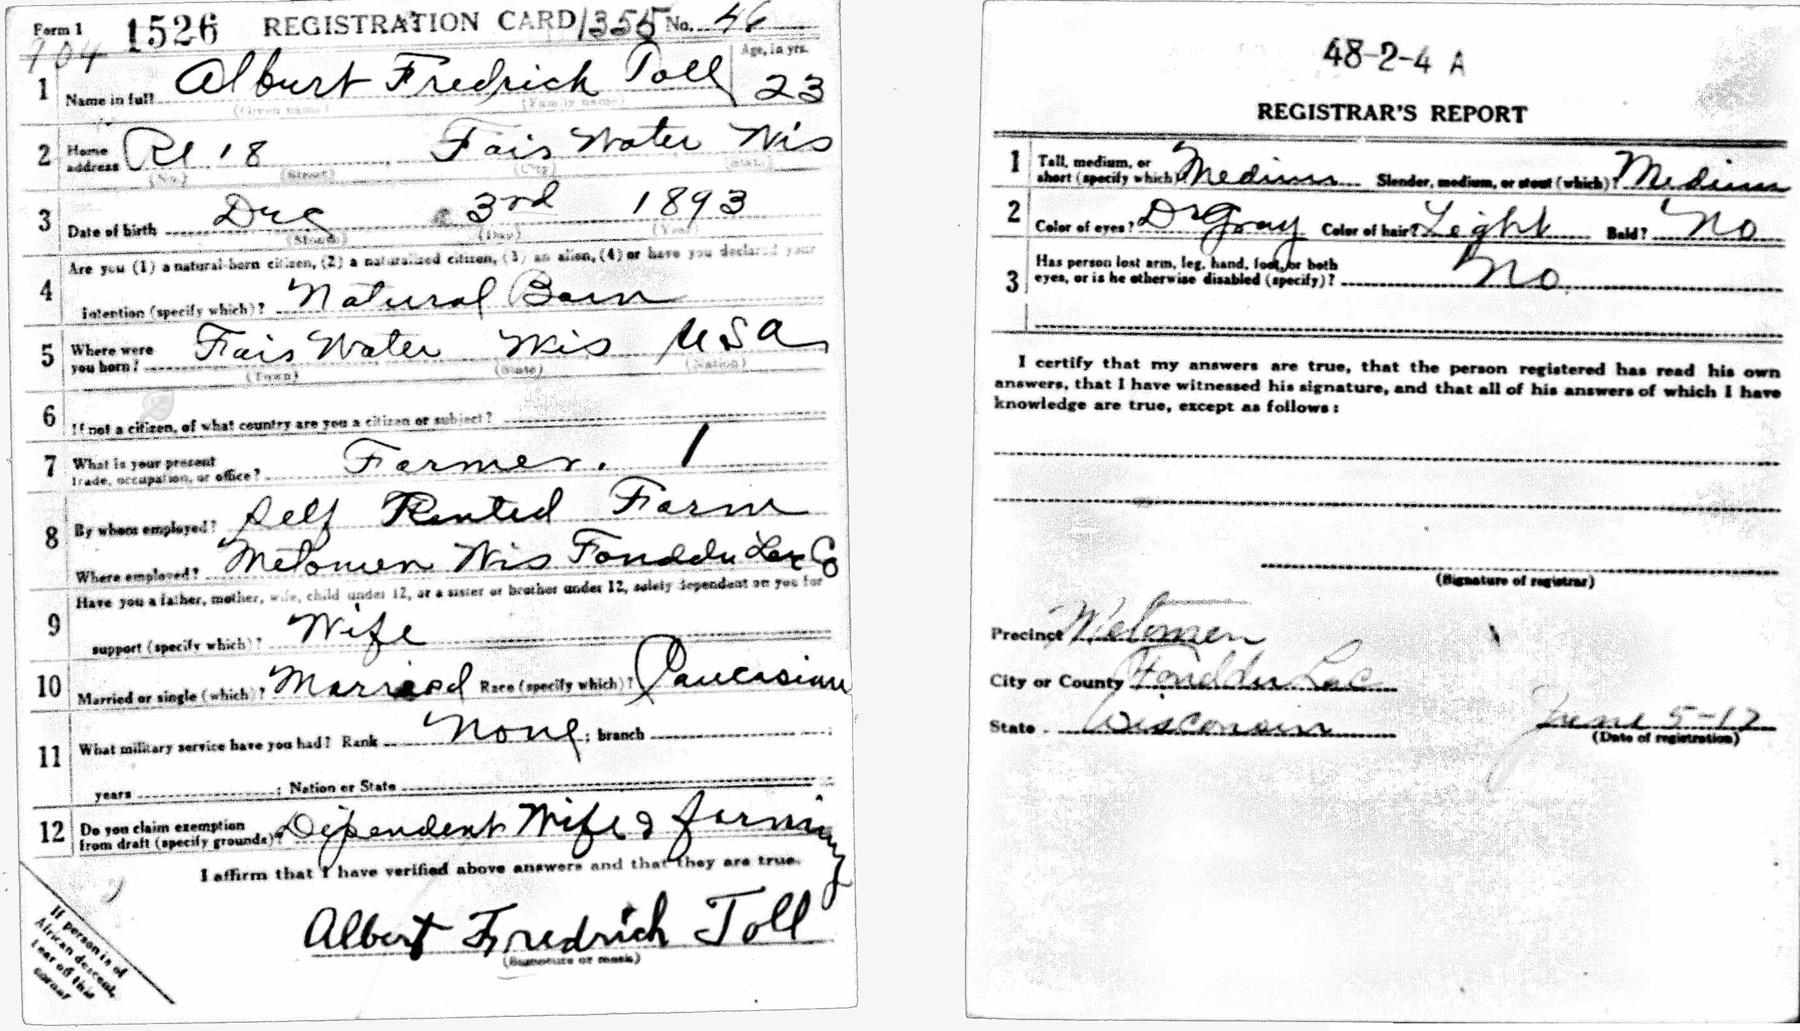 Form 1 1526 REGISTRATION CARD 1355 No. 46
904
Age, in yrs.
1 Name in full Alburt Fredrick Toll 23
(Given name) (Family name)
2 Home address R1 18 Fair Water Wis
(No.) (Street) (City) (State)
3 Date of birth Dec 3rd 1893
(Month) (Day) (Year)
Are you (1) a natural-born citizen, (2) a naturalized citizen, (3) an alien, (4) or have you declared your
4 intention (specify which)? Natural Born
5 Where were you born? Fair Water Wis USA
(Town) (State) (Nation)
6 If not a citizen, of what country are you a citizen or subject?
7 What is your present trade, occupation, or office? Farmer. 1
8 By whom employed? Self Rented Farm
Where employed? Metomen Wis Fonddu Lac Co
Have you a father, mother, wife, child under 12, or a sister or brother under 12, solely dependent on you for
9 support (specify which)? Wife
10 Married or single (which)? Married Race (specify which)? Caucasian
11 What military service have you had? Rank None; branch ;
years ; Nation or State
12 Do you claim exemption from draft (specify grounds)? Dependent Wife & farming
I affirm that I have verified above answers and that they are true.
Albert Fredrich Toll
(Signature or mark)
If person is of
African descent,
tear off this
corner
48-2-4 A
REGISTRAR'S REPORT
1 Tall, medium, or short (specify which)? Medium Slender, medium, or stout (which)? Medium
2 Color of eyes? Dr Gray Color of hair? Light Bald? No
3 Has person lost arm, leg, hand, foot, or both
eyes, or is he otherwise disabled (specify)? No.
I certify that my answers are true, that the person registered has read his own
answers, that I have witnessed his signature, and that all of his answers of which I have
knowledge are true, except as follows:
(Signature of registrar)
Precinct Metomen
City or County Fonddu Lac
State Wisconsin June 5-17
(Date of registration)